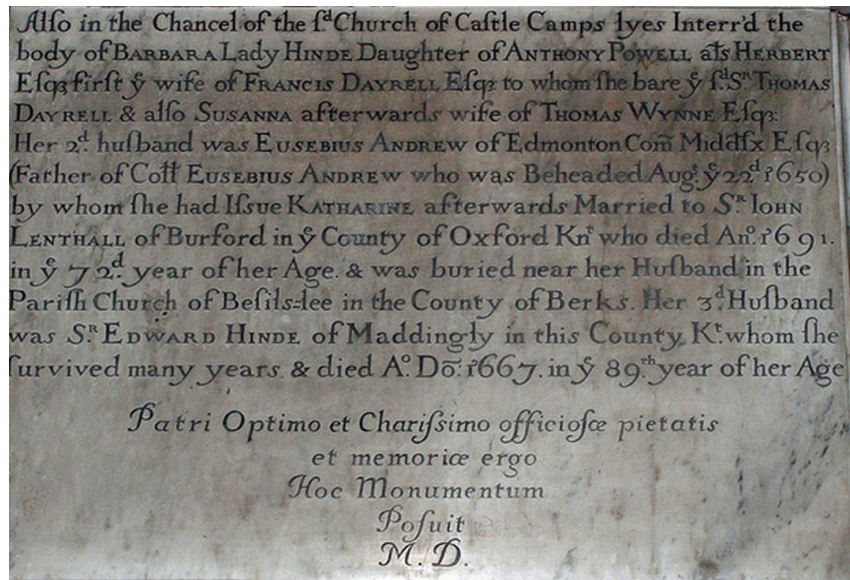 Alſo in the Chancel of the ſᵈ Church of Caſtle Camps lyes Interr'd the
body of BARBARA Lady HINDE Daughter of ANTHONY POWELL als HERBERT
Eſqꝫ firſt yᵉ wife of FRANCIS DAYRELL Eſqꝫ to whom ſhe bare yᵉ ſᵈ Sᴿ THOMAS
DAYRELL & alſo SUSANNA afterwards wife of THOMAS WYNNE Eſqꝫ:
Her 2ᵈ. huſband was EUSEBIUS ANDREW of Edmonton Com̄ Midd̄ſx Eſqꝫ
(Father of Coll̄ EUSEBIUS ANDREW who was Beheaded Augᵗ. yᵉ 22ᵈ 1650)
by whom ſhe had Iſsue KATHARINE afterwards Married to Sᴿ IOHN
LENTHALL of Burford in yᵉ County of Oxford Knᵗ who died Anᵒ. 1691.
in yᵉ 72ᵈ. year of her Age. & was buried near her Huſband in the
Pariſh Church of Beſils-lee in the County of Berks. Her 3ᵈ. Huſband
was Sᴿ EDWARD HINDE of Maddingly in this County Kᵗ. whom ſhe
ſurvived many years. & died Aᵒ. Dō: 1667. in yᵉ 89ᵗʰ year of her Age
Patri Optimo et Chariſsimo officioſæ pietatis
et memoriæ ergo
Hoc Monumentum
Poſuit
M. D.